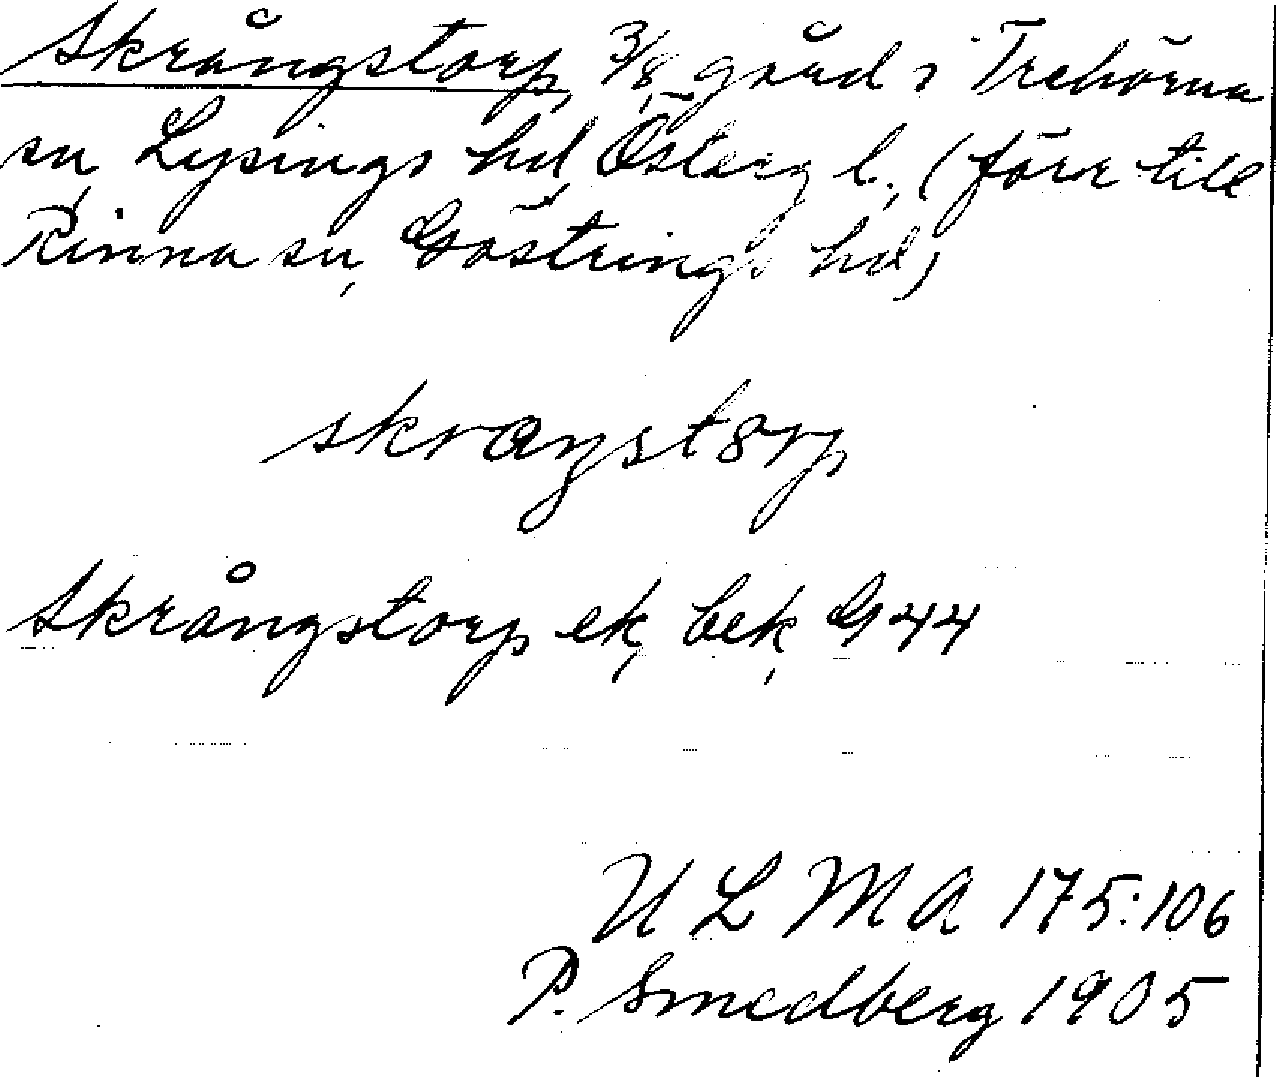 Skrångstorp, 3/8 gård i Trehörna
sn, Lysings hd, Österg l., (förr till
Rinna sn, Göstrings hd)
skraŋstorp
Skrångstorp ek, bek, G 44
U L M A 175:106
P. Smedberg 1905